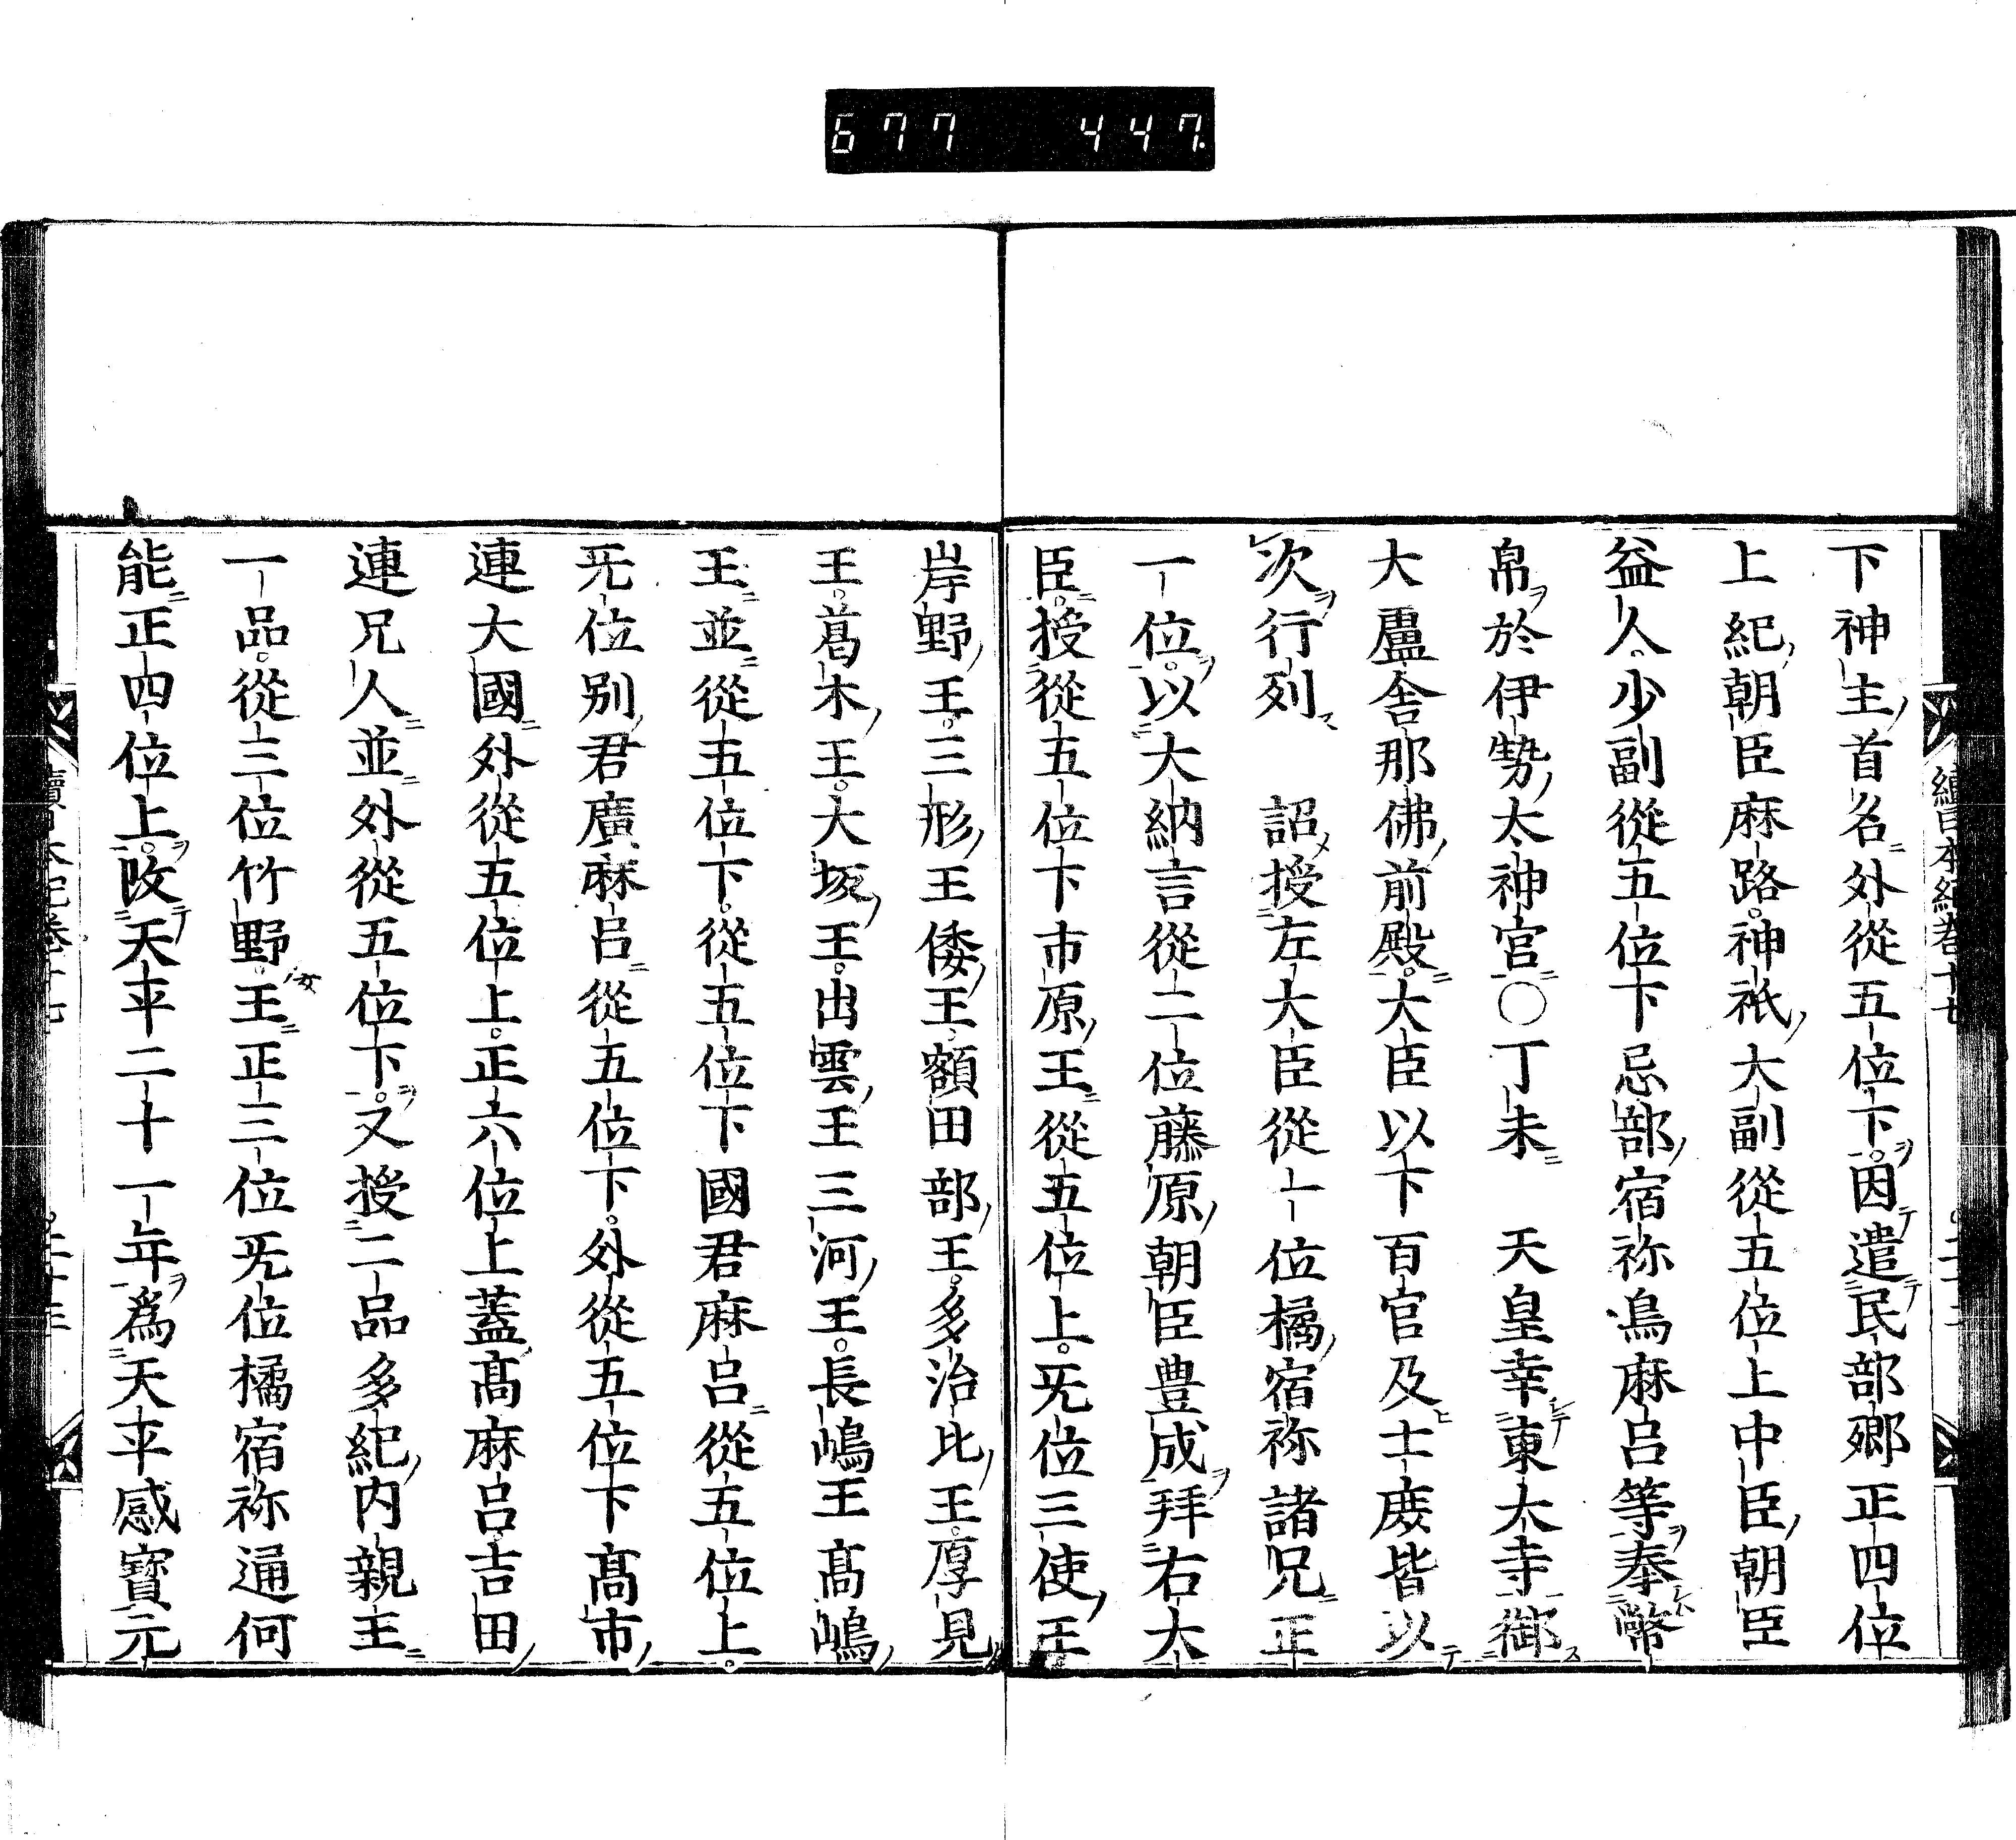 677 447.
續日本紀卷十七
下神主首名外從五位下因遣民部卿正四位
上紀朝臣麻路神祇大副從五位上中臣朝臣
益人少副從五位下忌部宿祢鳥麻呂等奉幣
帛於伊勢太神宮○丁未 天皇幸東大寺御
大盧舍那佛前殿大臣以下百官及士庶皆以
次行列 詔授左大臣從一位橘宿祢諸兄正
一位以大納言從二位藤原朝臣豊成拜右大
臣授從五位下市原王從五位上无位三使王
岸野王三形王倭王額田部王多治比王厚見
王葛木王大坂王出雲王三河王長嶋王髙嶋
王並從五位下從五位下國君麻呂從五位上
无位別君廣麻呂從五位下外從五位下髙市
連大國外從五位上正六位上蓋髙麻呂吉田
連兄人並外從五位下又授二品多紀内親王
一品從三位竹野王正三位无位橘宿祢通何
能正四位上改天平二十一年爲天平感寶元
續日本紀卷十七